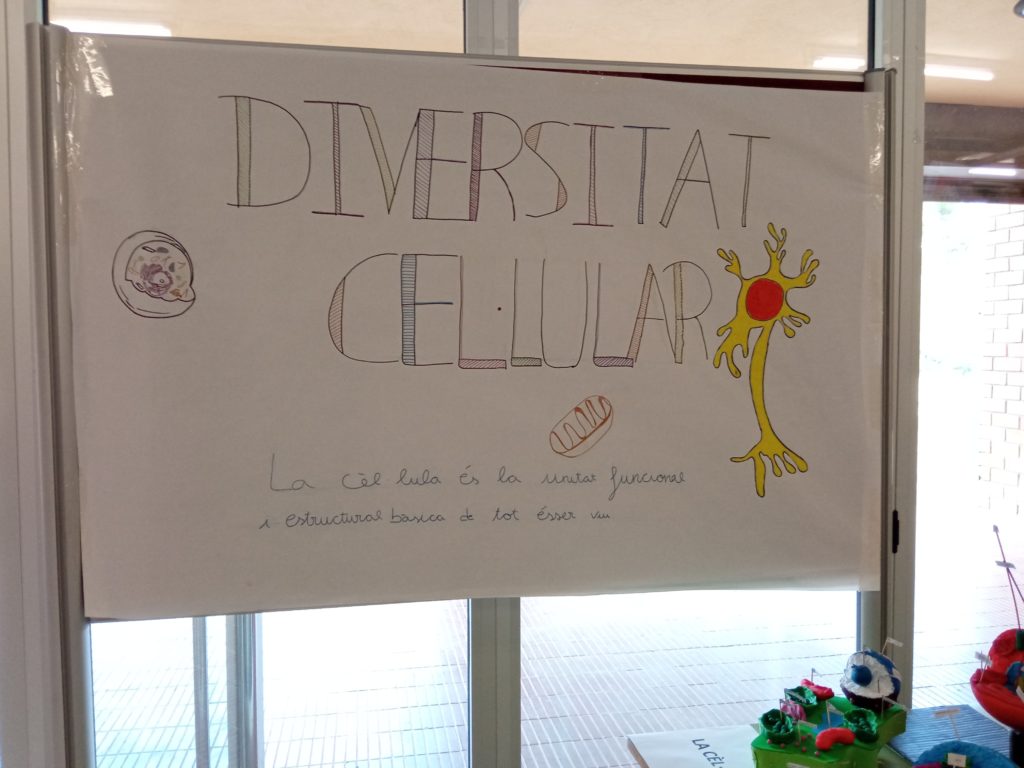 DIVERSITAT
CEL·LULAR
La cèl·lula és la unitat funcional
i estructural basica de tot ésser viu
LA CÈL·